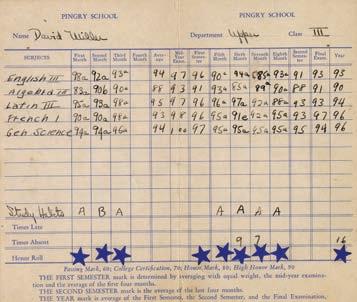 PINGRY SCHOOL PINGRY SCHOOL
Name David Miller Department Upper Class III
SUBJECTS First Month Second Month Third Month Average Mid-Year Exam. First Semester Month Sixth Month Seventh Month Eighth Month Average Final Exam. Year
English III 98a 92a 93a 94 97 96 90a 93a 91 93 95
Algebra 83a 90b 90a 88 93 91 93a 90a 88 91 90
Latin 95a 93a 98a 95 97 96 96a 97a 92a 93 94
French I 90a 90a 98a 93 98 96 95a 91a 92a 95a 93 97 96
Gen Science 94a 94a 96a 94 100 97 95a 95a 95a 95a 95 94 96
Study Habits A B A A A A A
Times Late
Times Absent 9 7 16
Honor Roll
Passing Mark, 60; College Certification, 70; Honor Mark, 80; High Honor Mark, 90
THE FIRST SEMESTER MARK is determined by averaging with equal weight, the mid-year examination and the average of the first four months.
THE SECOND SEMESTER MARK is the average of the last four months.
THE YEAR MARK is average of the First Semester, the Second Semester, and the Final Examination.